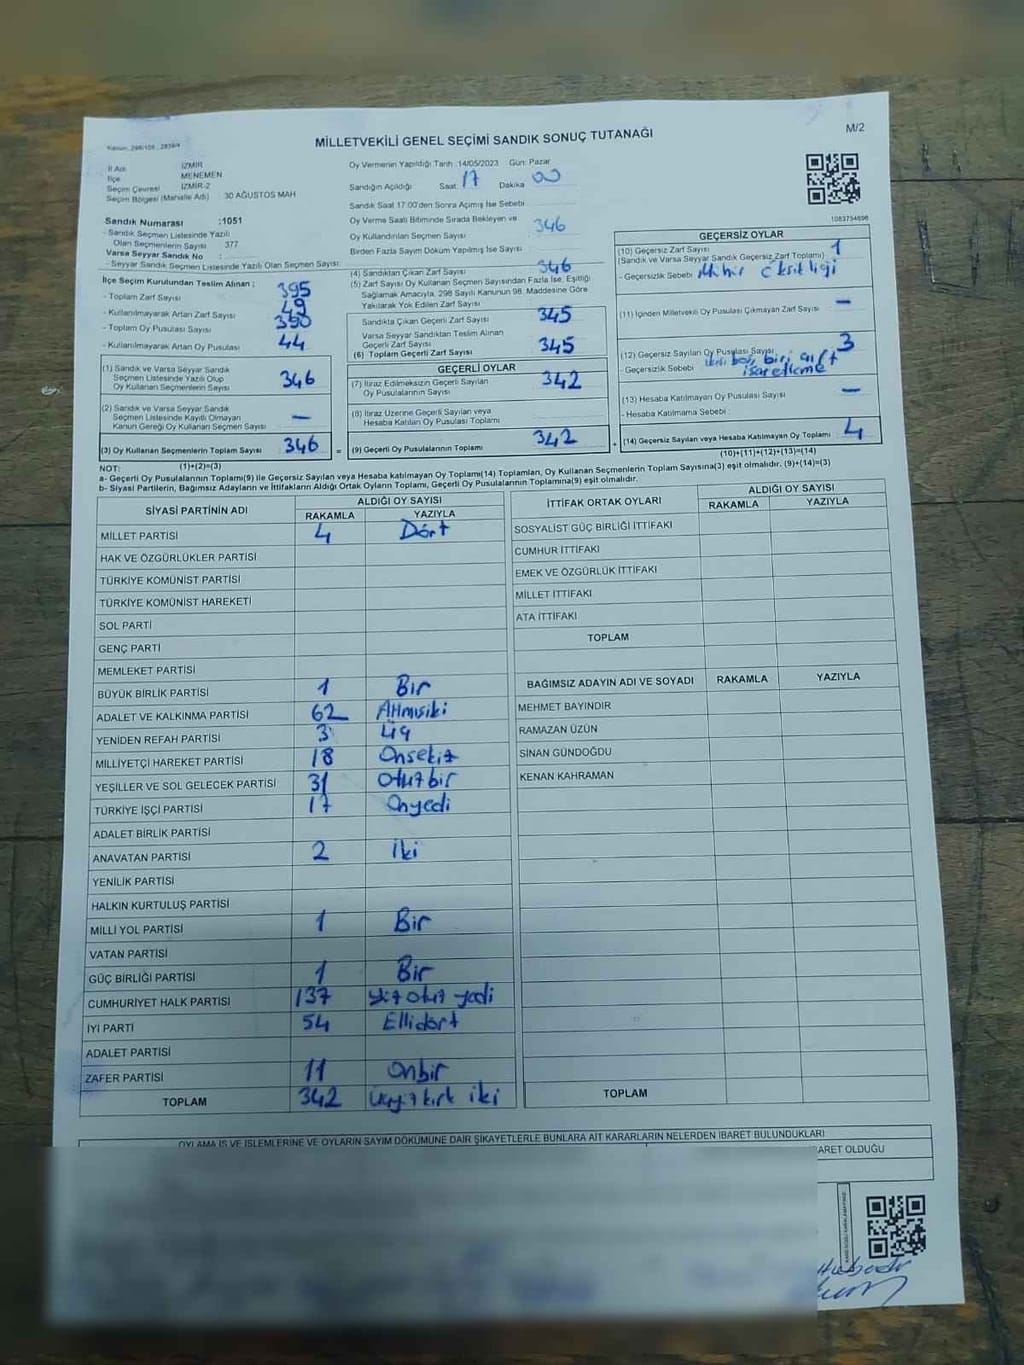 Kanun: 298/105 , 2839/4
MİLLETVEKİLİ GENEL SEÇİMİ SANDIK SONUÇ TUTANAĞI
M/2
İl Adı İZMİR
İlçe MENEMEN
Seçim Çevresi İZMİR-2
Seçim Bölgesi (Mahalle Adı) 30 AĞUSTOS MAH
Sandık Numarası :1051
- Sandık Seçmen Listesinde Yazılı
Olan Seçmenlerin Sayısı 377
Varsa Seyyar Sandık No :
- Seyyar Sandık Seçmen Listesinde Yazılı Olan Seçmen Sayısı:
İlçe Seçim Kurulundan Teslim Alınan ;
- Toplam Zarf Sayısı 395
- Kullanılmayarak Artan Zarf Sayısı 49
- Toplam Oy Pusulası Sayısı 390
- Kullanılmayarak Artan Oy Pusulası 44
(1) Sandık ve Varsa Seyyar Sandık
Seçmen Listesinde Yazılı Olup
Oy Kullanan Seçmenlerin Sayısı 346
(2) Sandık ve Varsa Seyyar Sandık
Seçmen Listesinde Kayıtlı Olmayan
Kanun Gereği Oy Kullanan Seçmen Sayısı —
(3) Oy Kullanan Seçmenlerin Toplam Sayısı 346
Oy Vermenin Yapıldığı Tarih :14/05/2023 Gün: Pazar
Sandığın Açıldığı Saat: 17 Dakika 00
Sandık Saat 17:00'den Sonra Açılmış İse Sebebi
Oy Verme Saati Bitiminde Sırada Bekleyen ve
Oy Kullandırılan Seçmen Sayısı 346
Birden Fazla Sayım Döküm Yapılmış İse Sayısı
(4) Sandıktan Çıkan Zarf Sayısı 346
(5) Zarf Sayısı Oy Kullanan Seçmen Sayısından Fazla İse, Eşitliği
Sağlamak Amacıyla, 298 Sayılı Kanunun 98. Maddesine Göre
Yakılarak Yok Edilen Zarf Sayısı
Sandıkta Çıkan Geçerli Zarf Sayısı 345
Varsa Seyyar Sandıktan Teslim Alınan
Geçerli Zarf Sayısı
(6) Toplam Geçerli Zarf Sayısı 345
GEÇERLİ OYLAR
(7) İtiraz Edilmeksizin Geçerli Sayılan
Oy Pusulalarının Sayısı 342
(8) İtiraz Üzerine Geçerli Sayılan veya
Hesaba Katılan Oy Pusulası Toplamı
= (9) Geçerli Oy Pusulalarının Toplamı 342
1083754696
GEÇERSİZ OYLAR
(10) Geçersiz Zarf Sayısı 1
(Sandık ve Varsa Seyyar Sandık Geçersiz Zarf Toplamı)
- Geçersizlik Sebebi Mühür eksikliği
(11) İçinden Milletvekili Oy Pusulası Çıkmayan Zarf Sayısı —
(12) Geçersiz Sayılan Oy Pusulası Sayısı 3
- Geçersizlik Sebebi ikisi boş, biri çift
işaretleme
(13) Hesaba Katılmayan Oy Pusulası Sayısı —
- Hesaba Katılmama Sebebi
+ (14) Geçersiz Sayılan veya Hesaba Katılmayan Oy Toplamı 4
(10)+(11)+(12)+(13)=(14)
NOT: (1)+(2)=(3)
a- Geçerli Oy Pusulalarının Toplamı(9) ile Geçersiz Sayılan veya Hesaba katılmayan Oy Toplamı(14) Toplamları, Oy Kullanan Seçmenlerin Toplam Sayısına(3) eşit olmalıdır. (9)+(14)=(3)
b- Siyasi Partilerin, Bağımsız Adayların ve İttifakların Aldığı Oy Toplamı, Geçerli Oy Pusulalarının Toplamına(9) eşit olmalıdır.
SİYASİ PARTİNİN ADI ALDIĞI OY SAYISI
RAKAMLA YAZIYLA
MİLLET PARTİSİ 4 Dört
HAK VE ÖZGÜRLÜKLER PARTİSİ
TÜRKİYE KOMÜNİST PARTİSİ
TÜRKİYE KOMÜNİST HAREKETİ
SOL PARTİ
GENÇ PARTİ
MEMLEKET PARTİSİ
BÜYÜK BİRLİK PARTİSİ 1 Bir
ADALET VE KALKINMA PARTİSİ 62 Altmışiki
YENİDEN REFAH PARTİSİ 3 Üç
MİLLİYETÇİ HAREKET PARTİSİ 18 Onsekiz
YEŞİLLER VE SOL GELECEK PARTİSİ 31 Otuzbir
TÜRKİYE İŞÇİ PARTİSİ 17 Onyedi
ADALET BİRLİK PARTİSİ
ANAVATAN PARTİSİ 2 İki
YENİLİK PARTİSİ
HALKIN KURTULUŞ PARTİSİ
MİLLİ YOL PARTİSİ 1 Bir
VATAN PARTİSİ
GÜÇ BİRLİĞİ PARTİSİ 1 Bir
CUMHURİYET HALK PARTİSİ 137 Yüz otuz yedi
İYİ PARTİ 54 Ellidört
ADALET PARTİSİ
ZAFER PARTİSİ 11 Onbir
TOPLAM 342 Üçyüz kırk iki
İTTİFAK ORTAK OYLARI ALDIĞI OY SAYISI
RAKAMLA YAZIYLA
SOSYALİST GÜÇ BİRLİĞİ İTTİFAKI
CUMHUR İTTİFAKI
EMEK VE ÖZGÜRLÜK İTTİFAKI
MİLLET İTTİFAKI
ATA İTTİFAKI
TOPLAM
BAĞIMSIZ ADAYIN ADI VE SOYADI RAKAMLA YAZIYLA
MEHMET BAYINDIR
RAMAZAN ÜZÜN
SİNAN GÜNDOĞDU
KENAN KAHRAMAN
TOPLAM
OYLAMA İŞ VE İŞLEMLERİNE VE OYLARIN SAYIM DÖKÜMÜNE DAİR ŞİKAYETLERLE BUNLARA AİT KARARLARIN NELERDEN İBARET BULUNDUKLARI
BARET OLDUĞU